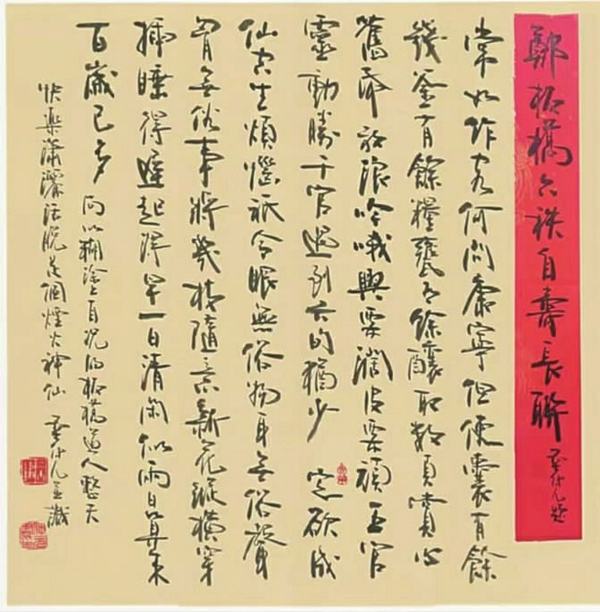 鄭板橋六秩自壽長聯
常如作客何問康寧但使囊有餘
錢釜有餘糧甕有餘釀取數頁賞心
舊帋放浪吟哦興要闊皮要頑五官
靈動勝千官過到六旬猶少 定欲成
仙空生煩惱祇令眼無俗物耳無俗聲
胷無俗事將幾枝隨意新花縱橫穿
插睡得遲起得早一日清閑似兩日算來
百歲已多 向以糊塗自况的板橋道人整天
快樂瀟灑活脫是個煙火神仙